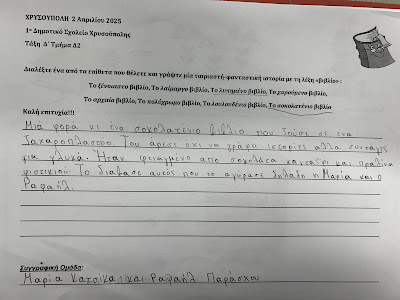 ΧΡΥΣΟΥΠΟΛΗ 2 Απριλίου 2025
1ο Δημοτικό Σχολείο Χρυσούπολης
Τάξη Δ΄ Τμήμα Δ2
Διαλέξτε ένα από τα επίθετα που θέλετε και γράψτε μία ταιριαστή-φανταστική ιστορία με τη λέξη «βιβλίο» :
Το ξένοιαστο βιβλίο, Το λαίμαργο βιβλίο, Το λυπημένο βιβλίο, Το χαρούμενο βιβλίο,
Το αρχαίο βιβλίο, Το πολύχρωμο βιβλίο, Το λουλουδένιο βιβλίο, Το σοκολατένιο βιβλίο
Καλή επιτυχία!!!
Μιά φορά κι ένα σοκολατένιο βιβλίο που ζούσε σε ένα
ζαχαροπλαστίο. Του άρεσε όχι να γράφει ιστορίες αλλά συνταγές
για γλυκά. Ήταν φτιαγμένο από σοκολάτα κανταΐφι και πραλίνα
φιστικιού. Το διάβασε αυτός που το αγόρασε δηλαδή η Μαρία και ο
Ραφαήλ.
Συγγραφική Ομάδα:
Μαρία Κατσίκα και Ραφαήλ Παράσχου